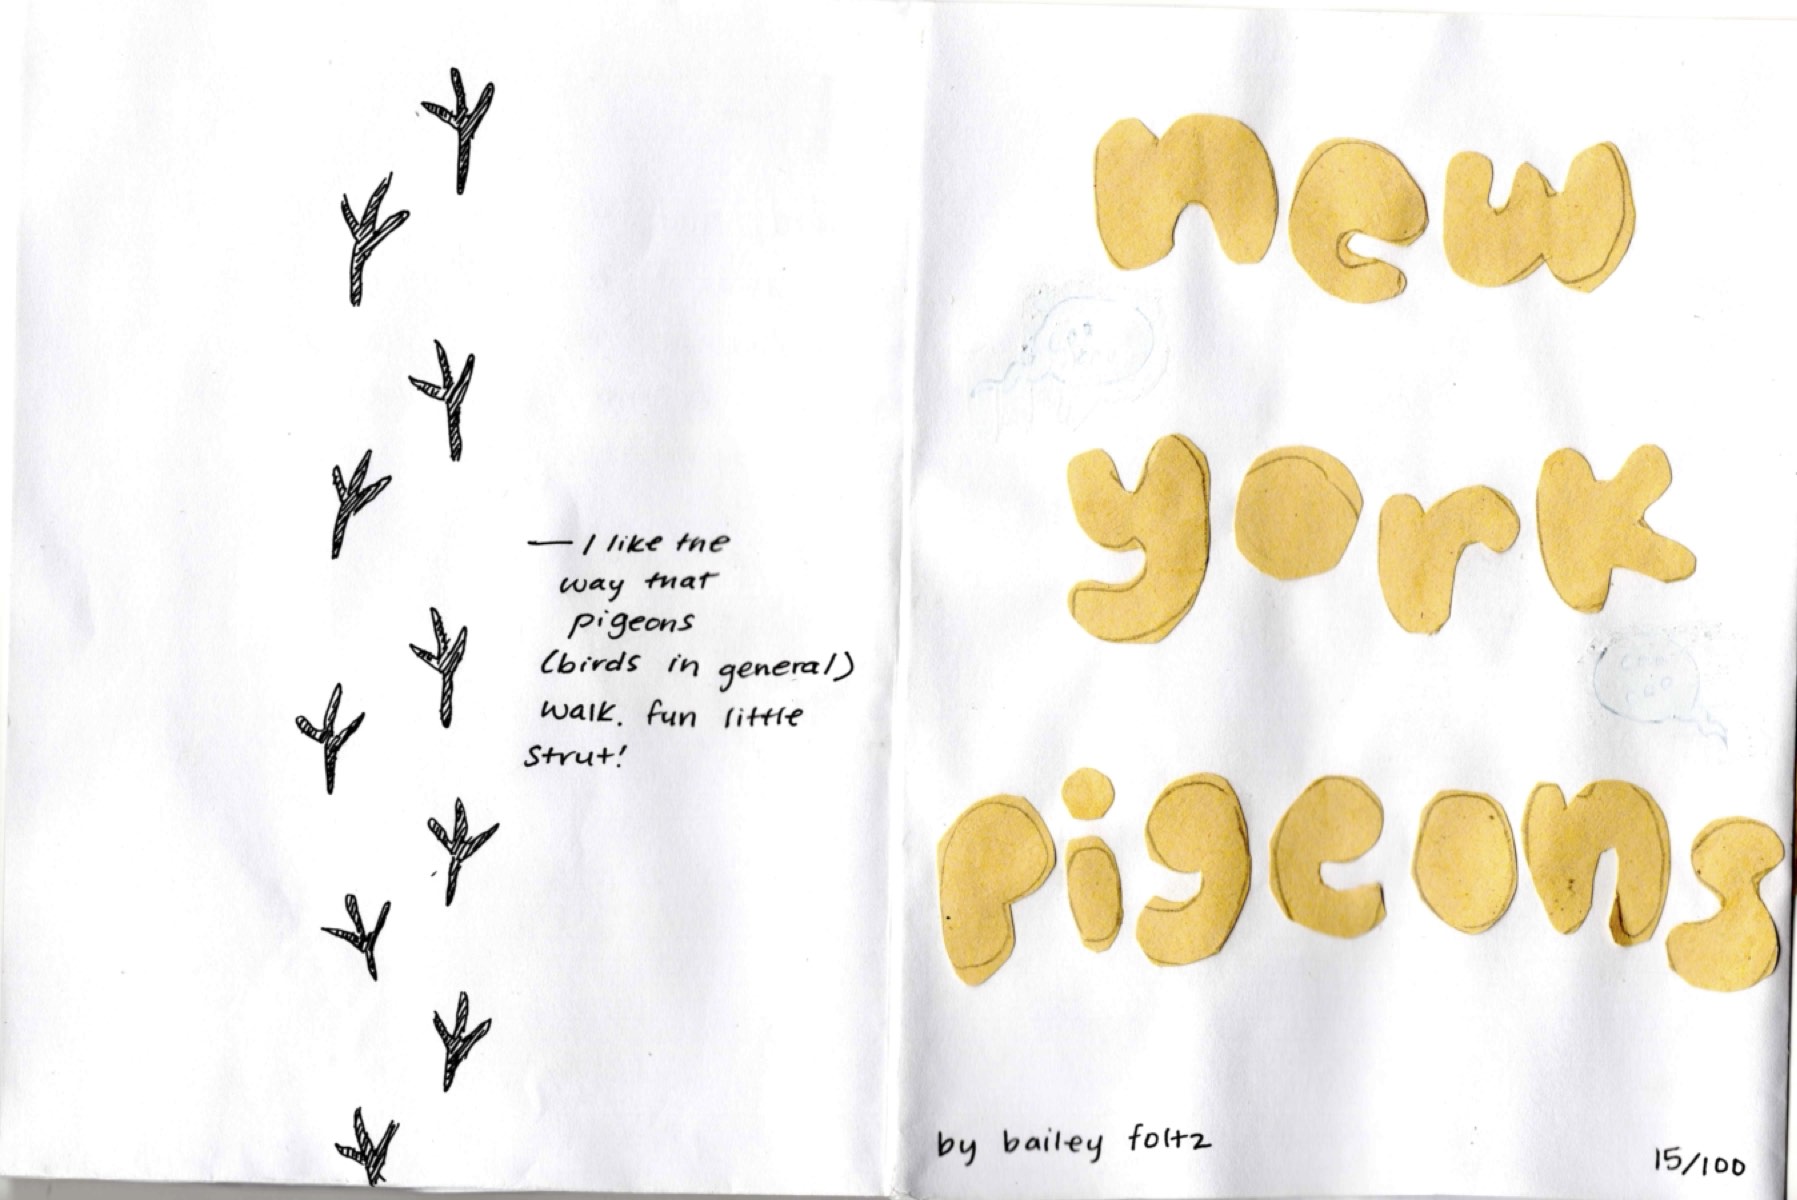 — I like the
way that
pigeons
(birds in general)
walk. fun little
strut!
new
york
pigeons
by bailey foltz
15/100